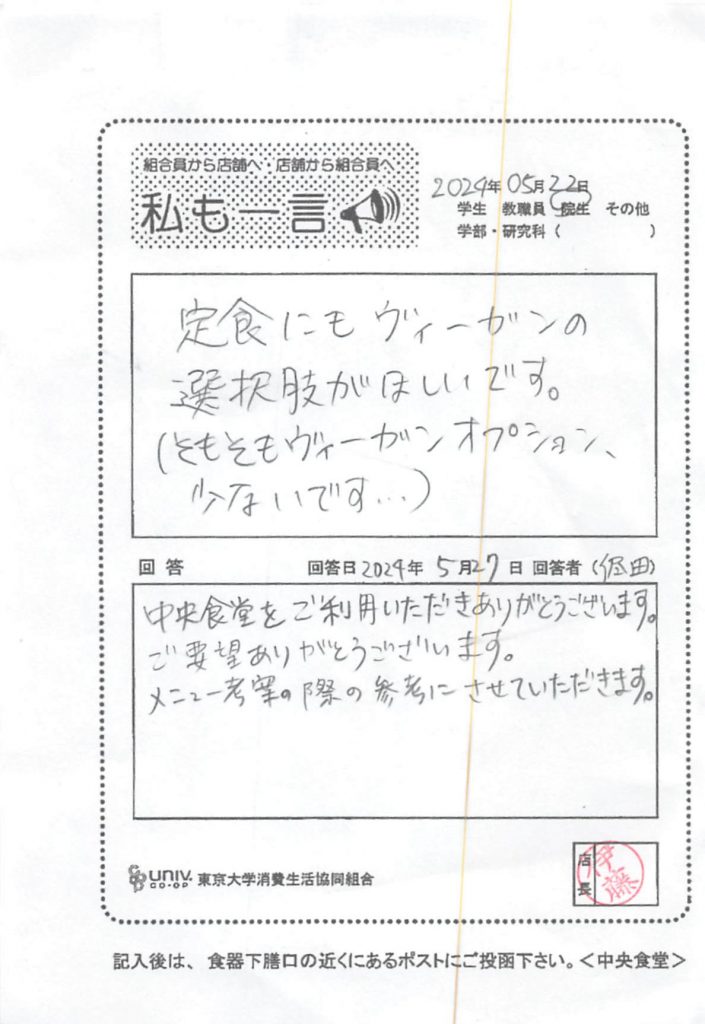 組合員から店舗へ・店舗から組合員へ
私も一言
2024年05月22日
学生 教職員 院生 その他
学部・研究科( )
定食にもヴィーガンの
選択肢がほしいです。
(そもそもヴィーガンオプション、
少ないです…)
回答 回答日2024年5月27日 回答者(田)
中央食堂をご利用いただきありがとうございます。
ご要望ありがとうございます。
メニュー考案の際の参考にさせていただきます。
UNIV. CO-OP 東京大学消費生活協同組合
店長 伊藤
記入後は、食器下膳口の近くにあるポストにご投函下さい。<中央食堂>